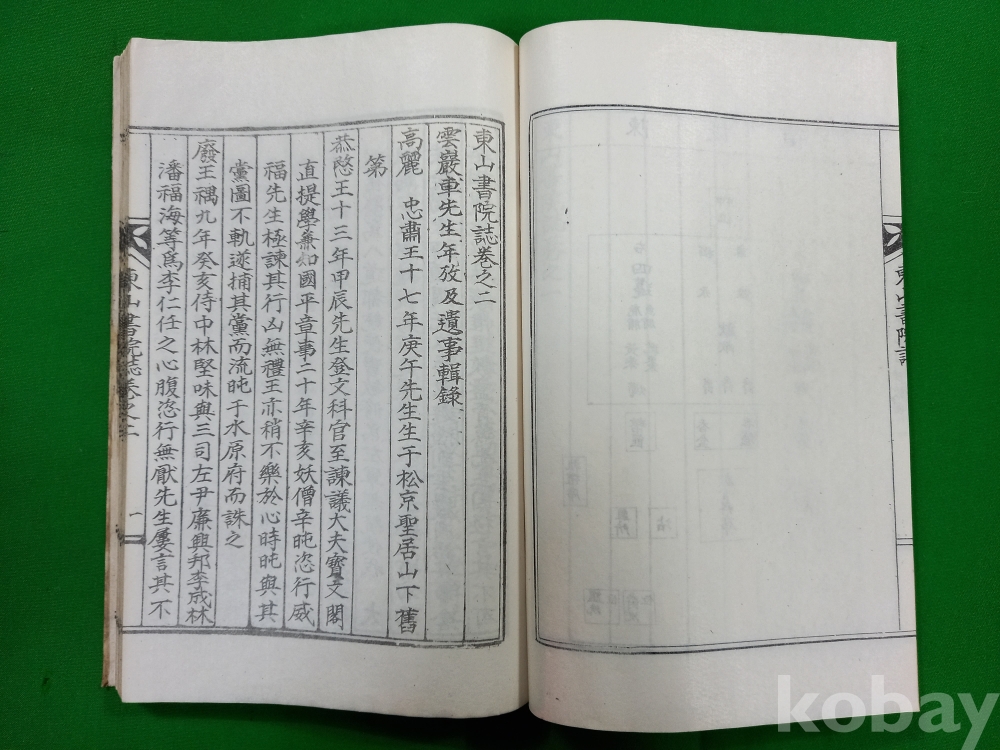 東山書院誌卷之二
雲巖車先生年攷及遺事輯錄
高麗 忠肅王十七年庚午先生生于松京聖居山下舊
第
恭愍王十三年甲辰先生登文科官至諫議大夫寶文閣
直提學兼知國平章事二十年辛亥妖僧辛旽恣行威
福先生極諫其行凶無禮王亦稍不樂於心時旽與其
黨圖不軌遂捕其黨而流旽于水原府而誅之
廢王禑九年癸亥侍中林堅味與三司左尹廉興邦李成林
潘福海等爲李仁任之心腹恣行無厭先生屢言其不
東山書院誌卷之二
一
東山書院誌
kobay